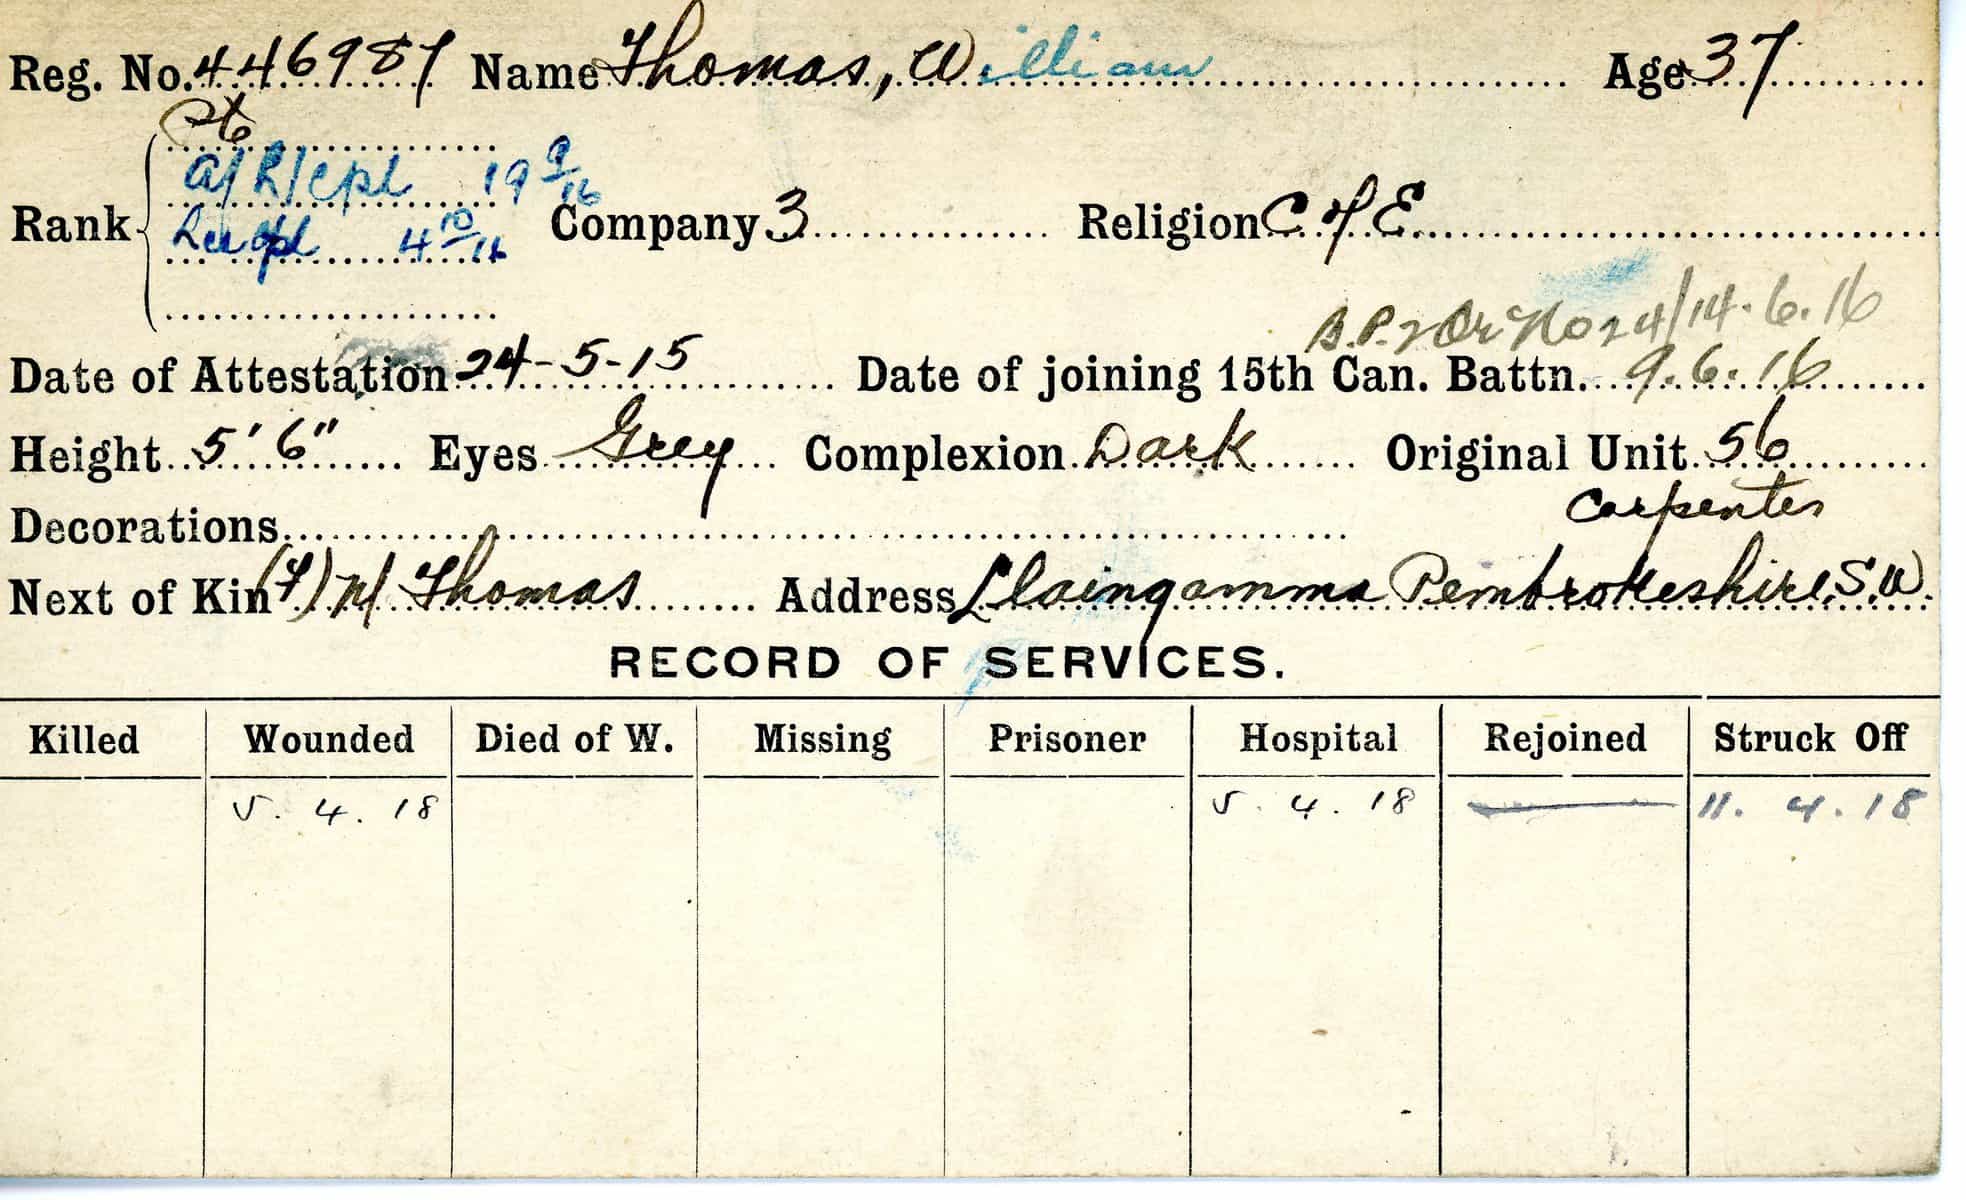 Reg. No. 446987 Name Thomas, William Age 37
Pte
a/L/Cpl 19 9/16
Rank Company 3 Religion C of E
L/Cpl 4 10/16
B.P. 2 Or No 24/14.6.16
Date of Attestation 24-5-15 Date of joining 15th Can. Battn. 9.6.16
Height 5' 6" Eyes Grey Complexion Dark Original Unit 56
Carpenter
Decorations
Next of Kin (F) M Thomas Address Llaingamma Pembrokeshire, S.W.
RECORD OF SERVICES.
Killed Wounded Died of W. Missing Prisoner Hospital Rejoined Struck Off
5. 4. 18 5. 4. 18 11. 4. 18